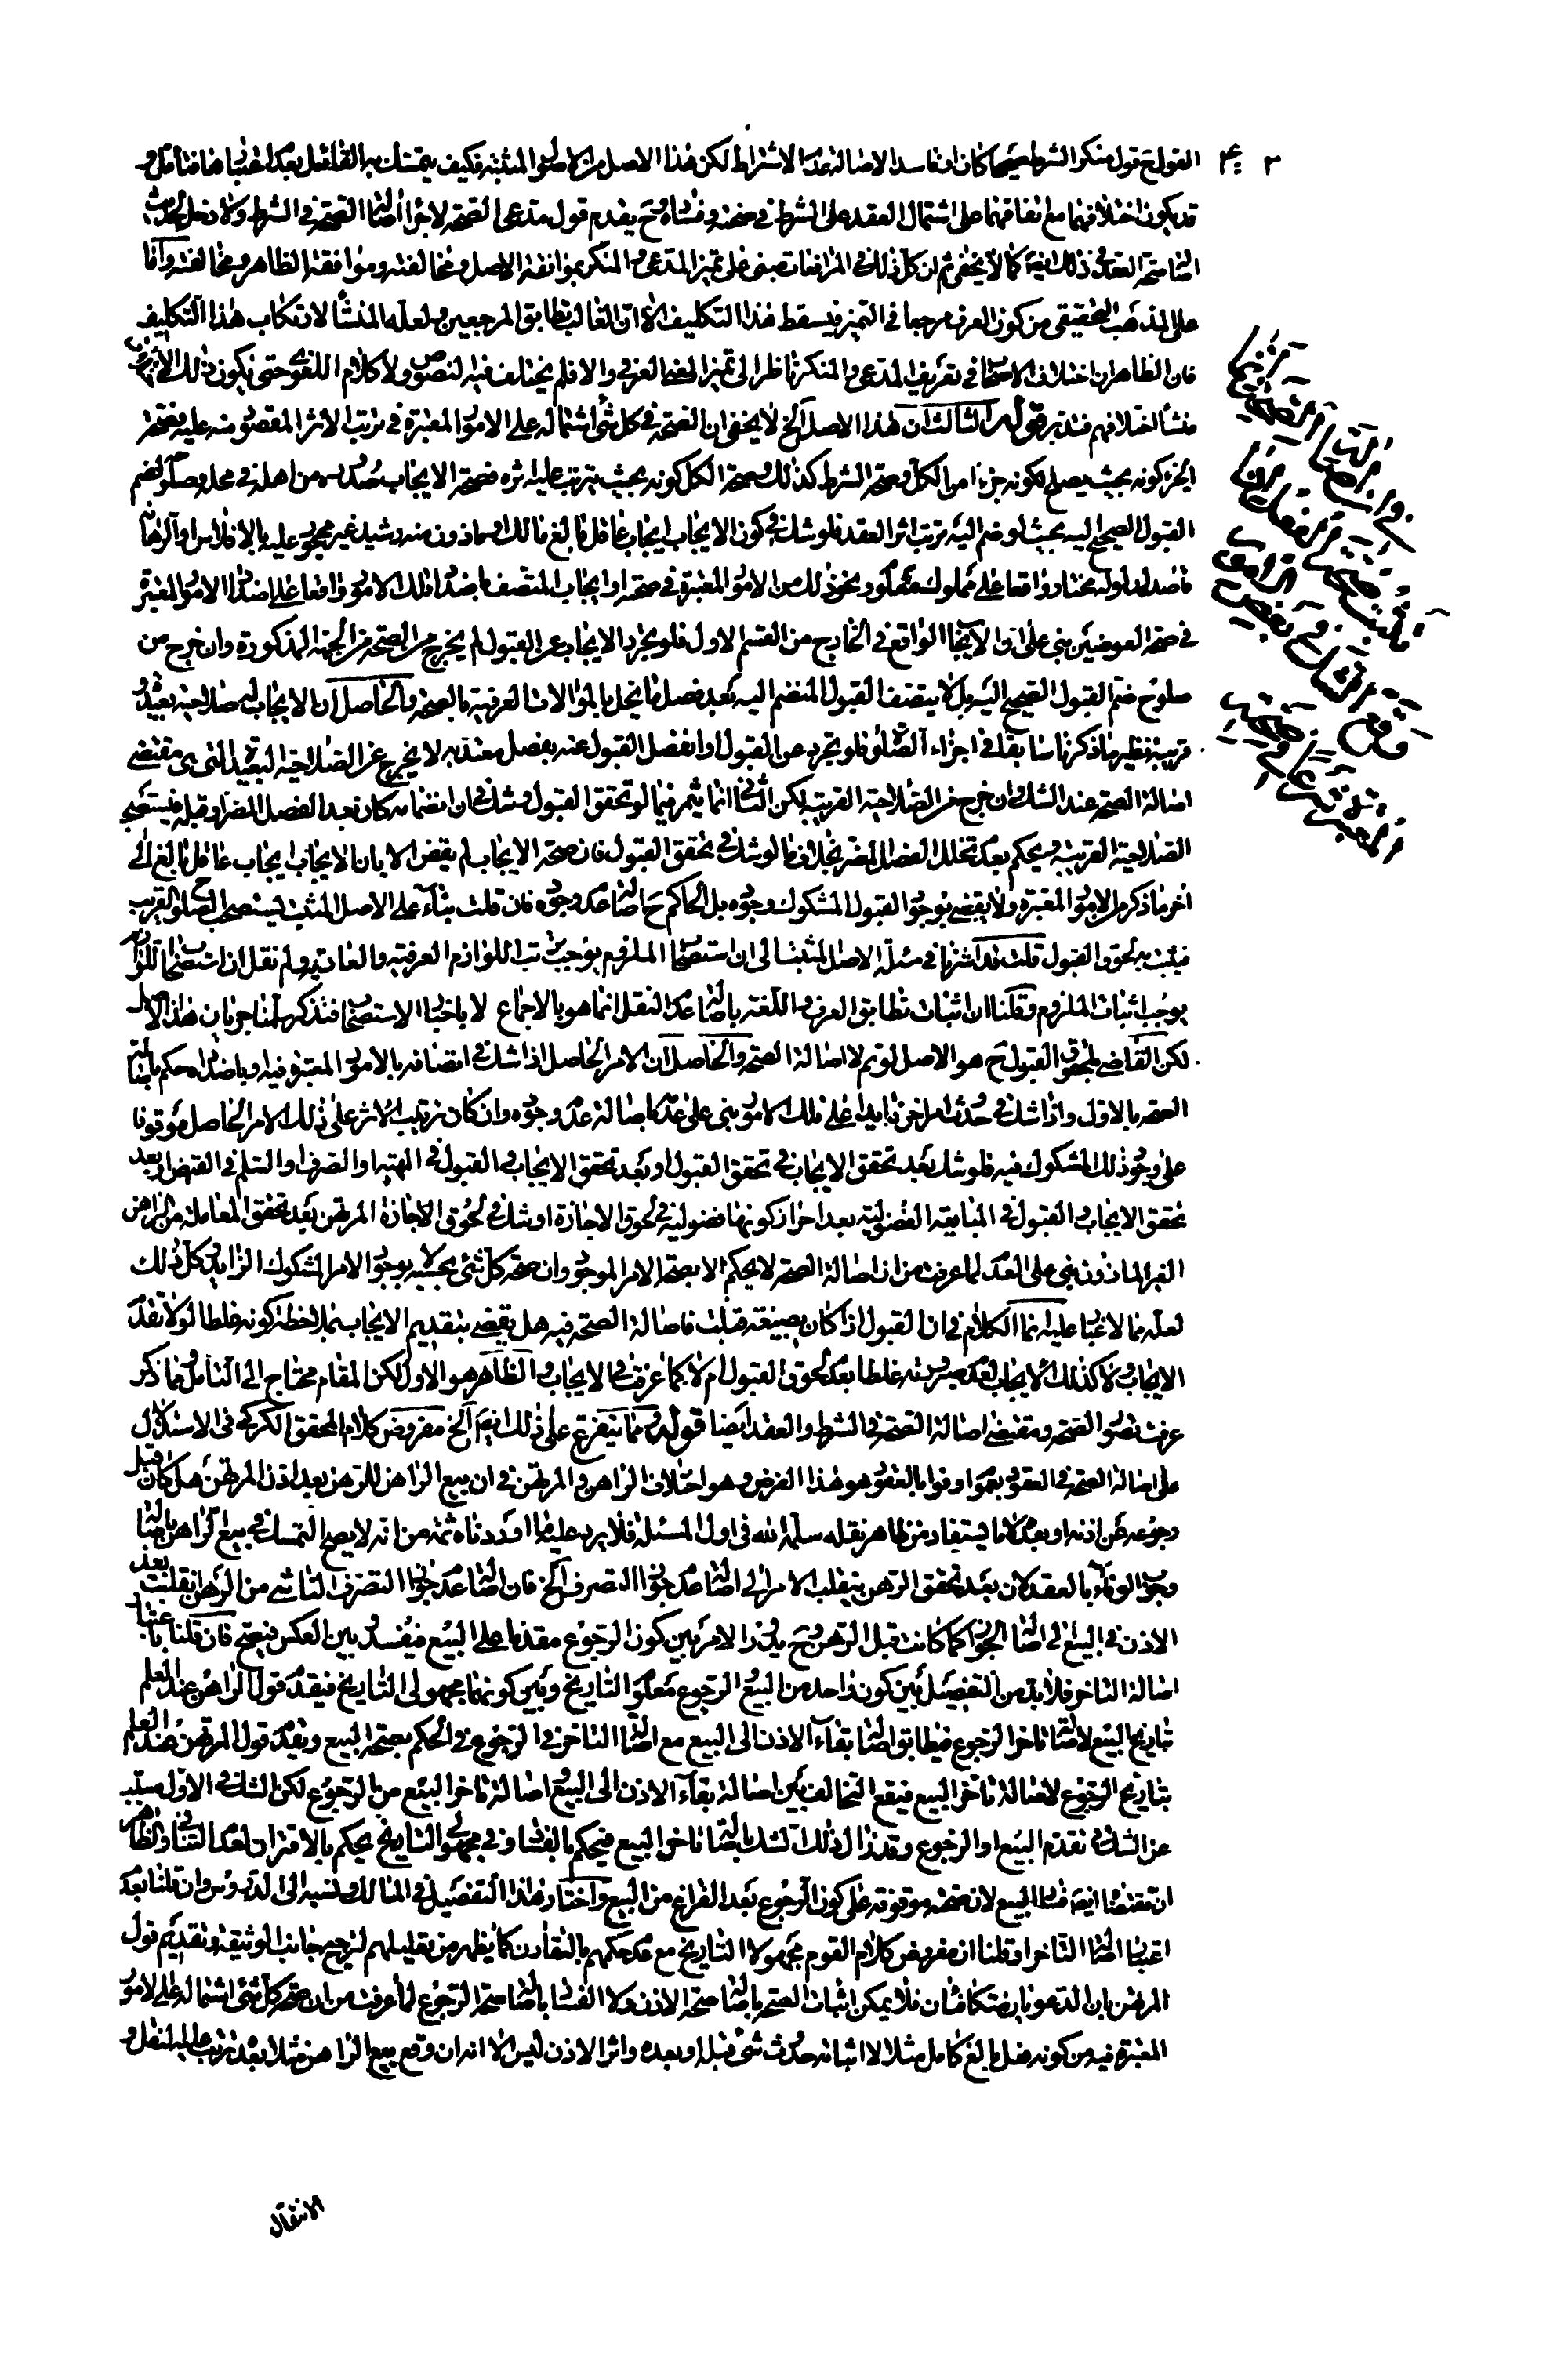 القول ح قول منكر الشرط صحيحا كان او فاسدا لاصالة عدم الاشتراط لكن هذا الاصل من الاصول المثبتة فكيف يتمسك به القائل بعدم اعتبارها فتأمل و
قد يكون اختلافهما مع اتفاقهما على اشتمال العقد على الشرط في صحته وفساده وح يقدم قول مدعى الصحة لاجراء اصالة الصحة في الشرط ولا دخل لحديث
اصالة صحة العقد في ذلك ايضا كما لا يخفى ثم ان كل ذلك في المرافعات مبنى على تميز المدعى والمنكر بموافقة الاصل ومخالفته وموافقة الظاهر ومخالفته واما
على المذهب التحقيقى من كون العرف مرجعا في التميز فيسقط هذا التكليف الا ان الغالب تطابق المرجعين ولعله المنشأ لارتكاب هذا التكليف
فان الظاهر ان اختلاف الاصحاب في تعريف المدعى والمنكر ناظر الى تميز المعنى العرفى والا فلم يختلف فيه النصوص ولا كلام اللغوى حتى يكون ذلك
منشأ اختلافهم فتدبر قوله الثالث ان هذا الاصل الخ لا يخفى ان الصحة في كل شئ اشتماله على الامور المعتبرة في ترتب الاثر المقصود منه عليه فصحة
الجزء كونه بحيث يصلح لكونه جزءا من الكل وصحة الشرط كذلك وصحة الكل كونه بحيث يترتب عليه اثره فصحة الايجاب صدوره من اهله في محله وصلوحه لضم
القبول الصحيح اليه بحيث لو ضم اليه ترتب اثر العقد فلو شك في كون الايجاب ايجاب عاقل بالغ مالك او ماذون منه رشيد غير محجور عليه بالافلاس او الرهانة
قاصد لمدلوله مختار واقعا على مملوك معلوم ونحو ذلك من الامور المعتبرة في صحته او ايجاب المتصف باضداد تلك الامور واقعا على اضداد الامور المعتبرة
في صحة العوضين بنى على ان الايجاب الواقع في الخارج من القسم الاول فلو تجرد الايجاب عن القبول لم يخرج من الصحة من الجهة المذكورة وان خرج من
صلوح ضم القبول الصحيح اليه بل لا يتصف القبول المنضم اليه بعد فصل ما يخل بالموالات العرفية بالصحة والحاصل ان الايجاب له صلاحية بعيدة و
قريبة نظير ما ذكرنا سابقا في اجزاء الصلوة فلو تجرد عن القبول او انفصل القبول عنه بفصل معتد به لا يخرج عن الصلاحية البعيدة التى هى مقتضى
اصالة الصحة عند الشك وان خرج عن الصلاحية القريبة لكن الثانى انما يثمر فيما لو تحقق القبول وشك في ان انضمامه كان بعد الفصل المضر او قبله فيستصحب
الصلاحية القريبة ويحكم بعدم تخلل الفصل المضر بخلاف ما لو شك في تحقق القبول فان صحة الايجاب لم يقض الا بان الايجاب ايجاب عاقل بالغ الى
اخر ما ذكر من الامور المعتبرة ولا يقضى بوجود القبول المشكوك وجوده بل الحاكم ح اصالة عدم وجوده فان قلت بناء على الاصل المثبت يستصحب الصلوح القريب
فيثبت به لحوق القبول قلت قد اشرنا في مسئلة الاصل المثبت الى ان استصحاب الملزوم يوجب ترتب اللوازم العرفية والعادية ولم نقل ان استصحاب اللوازم
يوجب اثبات الملزوم وقلنا ان اثبات تطابق العرف واللغة باصالة عدم النقل انما هو بالاجماع لا باخبار الاستصحاب فتذكر سلمنا جريان هذا الاصل
لكن القاضى بلحوق القبول ح هو الاصل لو تم لا اصالة الصحة والحاصل ان الامر الحاصل اذا شك في اتصافه بالامور المعتبرة فيه او باضدادها حكم باصالة
الصحة بالاول واذا شك في حدوث امر اخر زايدا على تلك الامور بنى على عدمه باصالة عدم وجوده وان كان ترتب الاثر على ذلك الامر الحاصل موقوفا
على وجود ذلك المشكوك فيه فلو شك بعد تحقق الايجاب في تحقق القبول او بعد تحقق الايجاب والقبول في الهبة او الصرف او السلم في القبض او بعد
تحقق الايجاب والقبول في المبايعة الفضولية بعد احراز كونها فضولية في لحوق الاجازة او شك في لحوق الاجازة المرتهن بعد تحقق المعاملة من الراهن
الغير الماذون بنى على العدم لما عرفت من ان اصالة الصحة لا يحكم الا بصحة الامر الموجود وان صحة كل شئ بحسبه لا بوجود الامر المشكوك الزايد وكل ذلك
لعله مما لا غبار عليه انما الكلام في ان القبول اذا كان بصيغة قبلت فاصالة الصحة فيه هل يقضى بتقديم الايجاب بملاحظة كونه غلطا لولا تقدم
الايجاب ولا كذلك الايجاب لعدم صيرورته غلطا بعدم لحوق القبول ام لا كما عرفت في الايجاب والظاهر هو الاول لكن المقام محتاج الى التأمل ومما ذكر
عرفت تصور الصحة ومقتضى اصالة الصحة في الشرط والعقد ايضا قوله ومما يتفرع على ذلك ايضا الخ مفروض كلام المحقق الكركى في الاستدلال
على اصالة الصحة في العقود بعموم اوفوا بالعقود هو هذا الفرض وهو اختلاف الراهن والمرتهن في ان بيع الراهن للرهن بعد اذن المرتهن هل كان قبل
رجوعه عن اذنه او بعده لا ما يستفاد من ظاهر نقله سلمه الله في اول المسئلة فلا يرد عليه ما اوردناه ثمة من انه لا يصح التمسك في بيع الراهن باصالة
وجوب الوفاء بالعقد لان بعد تحقق الرهن ينقلب الامر الى اصالة عدم جواز التصرف الخ فان اصالة عدم جواز التصرف الناشى من الرهن انقلبت بعد
الاذن في البيع الى اصالة الجواز كما كانت قبل الرهن وح يدور الامر بين كون الرجوع مقدما على البيع فيفسد وبين العكس فيصح فان قلنا باعتبار
اصالة التاخر فلا بد من التفصيل بين كون واحد من البيع والرجوع معلوم التاريخ وبين كونهما مجهولى التاريخ فيقدم قول الراهن عند العلم
بتاريخ البيع لاصالة تاخر الرجوع فيطابق اصالة بقاء الاذن الى البيع مع اصالة التاخر في الرجوع في الحكم بصحة البيع ويقدم قول المرتهن عند العلم
بتاريخ الرجوع لاصالة تاخر البيع فيقع التخالف بين اصالة بقاء الاذن الى البيع واصالة تاخر البيع من الرجوع لكن الشك في الاول مسبب
عن الشك في تقدم البيع او الرجوع وقد زال ذلك الشك باصالة تاخر البيع فيحكم بالفساد وفي مجهولى التاريخ يحكم بالاقتران لعدم الثالث والظاهر
ان مقتضاه ايضا فساد البيع لان صحته موقوفة على كون الرجوع بعد الفراغ من البيع واختار هذا التفصيل في المسالك ونسبه الى الدروس وان قلنا بعدم
اعتبار اصالة التاخر او قلنا ان مفروض كلام القوم مجهولا التاريخ مع عدم حكمهم بالتقارن كما يظهر من تعليلهم لترجيح جانب الوثيقة وتقديم قول
المرتهن بان الدعويان متكافئان فلا يمكن اثبات الصحة باصالة صحة الاذن ولا الفساد باصالة صحة الرجوع لما عرفت من ان صحة كل شئ اشتماله على الامور
المعتبرة فيه من كونه فعل بالغ كامل مثلا لا اثباته حدوث شئ قبله او بعده واثر الاذن ليس الا انه ان وقع بيع الراهن مثلا بعده ترتب عليه النقل و
الانتقال